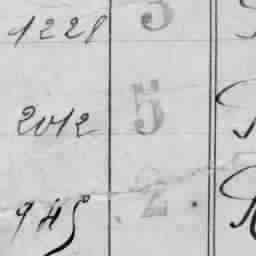 1221 5
2012 5
945 2.